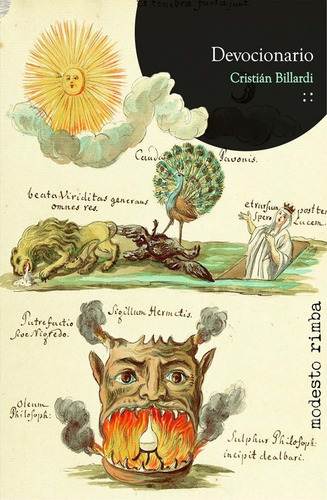 et tenebrae factae sunt
Devocionario
Cristián Billardi
Cauda Pavonis.
beata Viriditas generans
omnes res.
et rursum post ten
spero Lucem.
Sigillum Hermetis.
Putrefactio
sive Nigredo.
Oleum
Philosoph:
Sulphur Philosoph:
incipit dealbari.
modesto rimba